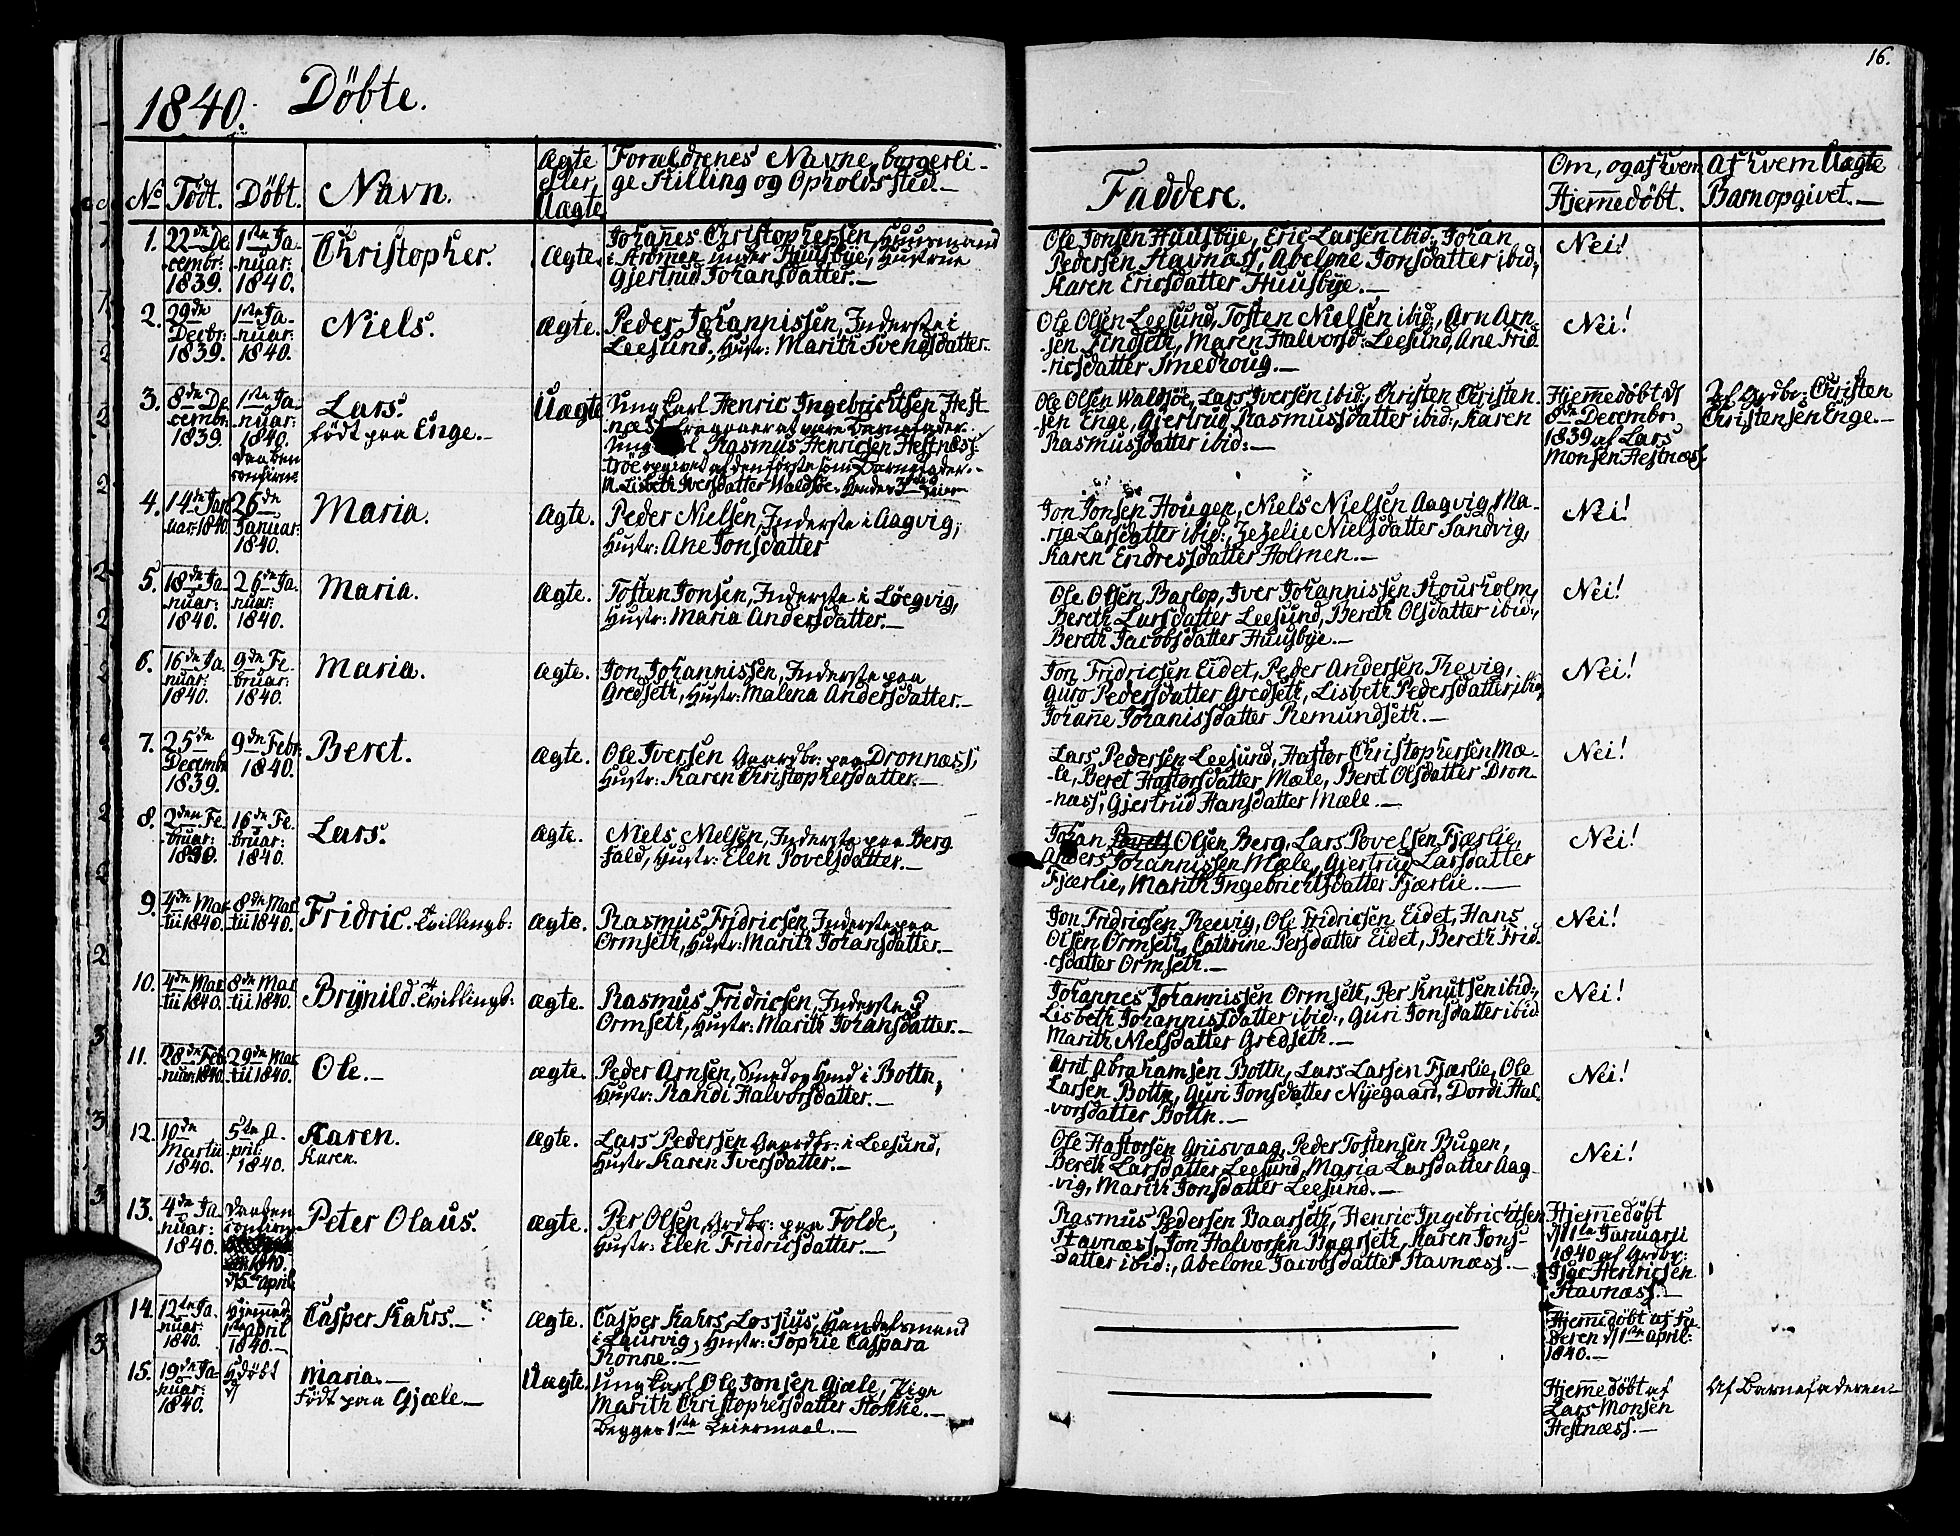 16.
1840. Döbte.
No Födt. Döbt. Navn. Ægte eller Uægte Forældrenes Navne, borgerli-
ge Stilling og Opholdssted.—
Faddere.
Om, og af hvem Hjemedöbt.
Af hvem Uægte Barn opgivet.—
1. 22de De-
cembr:
1839.
1ste Ja-
nuar:
1840.
Christopher.
Ægte.
Johañes Christophersen Huusmand
i Strömen under Huusbye, Hustrue
Gjertrud Johansdatter.—
Ole Jonsen Huusbye, Eric Larsen ibid:, Johan
Pedersen Stavnæss, Abelone Jonsdatter ibid:,
Karen Ericsdatter Huusbye.—
Nei!
2. 29de
Decbr:
1839.
1ste Ja-
nuar:
1840.
Niels.
Ægte.
Peder Johannissen, Inderste i
Leesund, Hustr: Marith Svendsdatter.
Ole Olsen Leesund, Tosten Nielsen ibid:, Arn Arn-
sen Findseth, Maren Halvorsd: Leesund, Ane Frid-
ricsdatter Smedroug.—
Nei!
3. 8de De-
cembr:
1839.
1ste Ja-
nuar:
1840.
Lars.
födt paa Enge.—
Uægte
Ungkarl Henric Ingebrichtsen Hest-
næss fragaaer at være Barnefader.
Rasmus Henricsen Hestnæss-
tröe opgivet af den förste som Barnefader.—
P. Lisbeth Iversdatter Waldsöe. Hendes 3die Leier
Ole Olsen Waldsöe, Lars Iversen ibid:, Christen Christen-
sen Enge, Gjertrud Rasmussdatter ibid:, Karen
Rasmussdatter ibid:—
Hjemedöbt d
8de Decembr:
1839 af Lars
Monsen Hestnæss
Af Grdbr: Christen
Christensen Enge.—
4. 14de Jan-
uar: 1840.
26de
Januar:
1840.
Maria.
Ægte.
Peder Nielsen, Inderste i Aagvig,
Hustr: Ane Jonsdatter
Jon Jonsen Hougen, Niels Nielsen Aagvig, Ma-
ria Larsdatter ibid:, Zezelie Nielsdatter Sandvig,
Karen Endressdatter Holmen.—
Nei!
5. 18de Ja-
nuar:
1840.
26de Ja-
nuar:
1840.
Maria.
Ægte.
Tosten Jonsen, Inderste i Löegvig,
Hustr: Maria Andersdatter.—
Ole Olsen Barlop, Iver Johannissen Stourholm,
Bereth Larsdatter Leesund, Bereth Olsdatter ibid:,
Bereth Jacobsdatter Huusbye.—
Nei!
6. 16de Ja-
nuar:
1840.
9de Fe-
bruar:
1840.
Maria.
Ægte.
Jon Johannissen, Inderste paa
Gredseth, Hustr: Malena Andersdatter.—
Jon Fridricsen Eidet, Peder Andersen Thevig,
Guro Pedersdatter Gredseth, Lisbeth Pedersdatter ibid,
Johañe Johanisdatter Remundseth.—
Nei!
7. 25de
Decembr
1839.
9de Febr:
1840.
Beret.
Ægte.
Ole Iversen Gaardbr: paa Dronnæss,
Hustr: Karen Christophersdatter.—
Lars Pedersen Leesund, Hastor Christophersen Mæ-
le, Beret Hastorsdatter Mæle, Beret Olsdatter Dron-
næss, Gjertrud Hansdatter Mæle.—
Nei!
8. 2den Fe-
bruar:
1840.
16de Fe-
bruar:
1840.
Lars.
Ægte.
Niels Nielsen, Inderste paa Berg
Fald, Hustr: Elen Povelsdatter.—
Johan Olsen Berg, Lars Povelsen Fjærlie,
Anders Johannissen Mæle, Gjertrud Larsdatter
Fjærlie, Marith Ingebrichtsdatter Fjærlie.—
Nei!
9. 4de Mar-
tii 1840.
8de Mar-
tii 1840.
Fridric. Tvillingb:
Ægte.
Rasmus Fridricsen, Inderste paa
Ormseth, Hustr: Marith Johansdatter.—
Jon Fridricsen Reevig, Ole Fridricsen Eidet, Hans
Olsen Ormseth, Cathrine Persdatter Eidet, Bereth Frid-
csdatter Ormseth.—
Nei!
10. 4de Mar-
tii 1840.
8de Mar-
tii 1840.
Brynild. Tvillingb:
Ægte.
Rasmus Fridricsen, Inderste
Ormseth, Hustr: Marith Johansdatter.—
Johannes Johannissen Ormseth, Per Knutsen ibid:,
Lisbeth Johannissdatter ibid:, Guri Jonsdatter ibid:
Marith Nielsdatter Gredseth.—
Nei!
11. 28de Feb-
ruar: 1840.
29de Mar-
tii 1840.
Ole.—
Ægte.
Peder Arnsen, Smed og Hmd i Bottn,
Hustr: Randi Halvorsdatter.—
Arnt Abrahamsen Bottn, Lars Larsen Fjærlie, Ole
Larsen Bottn, Guri Jonsdatter Nijegaard, Dordi Hal-
vorsdatter Bottn.—
Nei!
12. 10de
Martii
1840.
5te A-
pril:
1840.
Karen.
Karen.
Ægte.
Lars Pedersen Gaardbr: i Leesund,
Hustr Karen Iversdatter.—
Ole Hastorsen Griisvaag, Peder Tostensen Bugen,
Bereth Larsdatter Leesund, Maria Larsdatter Aag-
vig, Marith Jonsdatter Leesund.—
Nei!
13. 4de Ja-
nuar:
1840.
1840.
d 5te April
Peter Olaus.
Ægte.
Per Olsen, Grdbr: paa Folde,
Hustr: Elen Fridricsdatter.—
Rasmus Pedersen Baarseth, Henric Ingebrichtsen
Stavnæss, Jon Halvorsen Baarseth, Karen Jons-
datter ibid:, Abelone Jacobsdatter Stavnæss.—
Hjemedöbt
d 11te Januarii
1840 af Grdbr:
Henricsen
Stavnæss.—
14. 12te Ja-
nuar:
1840.
Hjemed:
1ste April
1840.—
Casper Kahrs.—
Ægte.
Casper Kahrs Lossius, Handelsmand
i Laurvig, Hustr: Sophie Caspara
Rönne.—
Hjemedöbt af Fa-
deren d 1ste April:
1840.—
15. 19de Ja-
nuar:
1840.
Hdöbt
d
Maria.—
Födt paa Gjæle.—
Uægte.
Ungkarl Ole Jonsen Gjæle, Pige
Marith Christophersdatter Stokke.—
Begges 1ste Leiermaal.—
Hjemedöbt af
Lars Monsen
Hestnæss.—
Af Barnefaderen.—